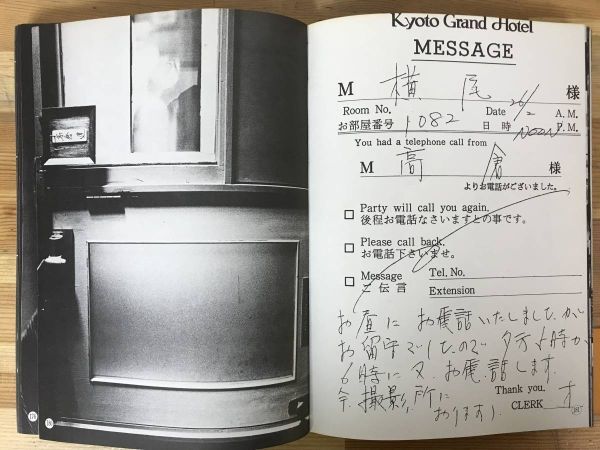 Kyoto Grand Hotel
MESSAGE
M 横尾 様
Room No. 1082 Date 26/2 A.M.
お部屋番号 日時 NOON P.M.
You had a telephone call from
M 高倉 様
よりお電話がございました。
Party will call you again.
後程お電話なさいますとの事です。
Please call back.
お電話下さいませ。
Message Tel. No.
ご伝言 Extension
お昼に お電話いたしましたが
お留守でしたので 夕方5時か
6時に又 お電話します。
今、撮影所に
おります)
Thank you.
CLERK オ